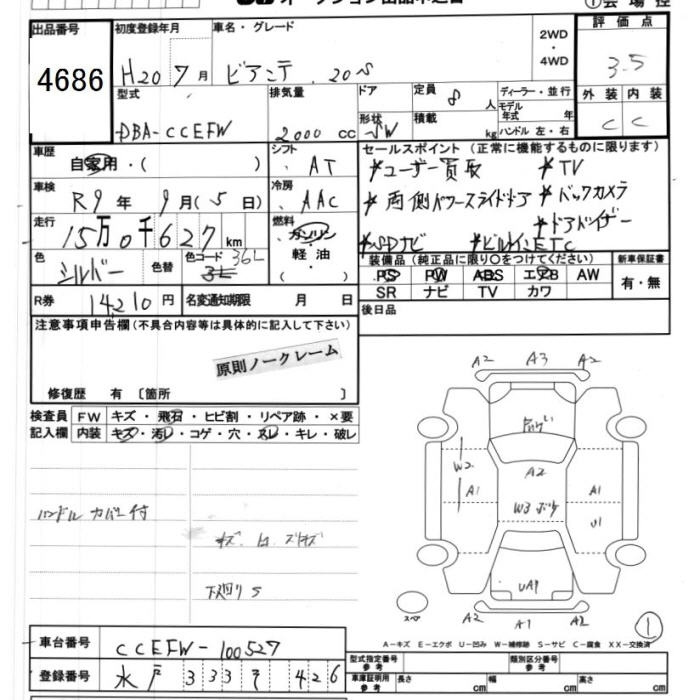 ①会場控
出品番号 4686
初度登録年月 H20 7月
車名・グレード ビアンテ 20S
2WD・4WD
評価点 3.5
外装 C 内装 C
型式 DBA-CCEFW
排気量 2000 cc
ドア
形状 SW
定員 8 人
積載 kg
ディーラー・並行
モデル年式 年式
ハンドル 左・右
車歴 自家用・( )
シフト AT
車検 R9年 9月(5日)
冷房 AAC
走行 15万0千627km
燃料 ガソリン・軽油・( )
色 シルバー 色替
色コード 36L
R券 14210円
名変通知期限 月 日
セールスポイント(正常に機能するものに限ります)
*ユーザー買取 *TV
*両側パワースライドドア *バックカメラ
*ドアバイザー
*SDナビ *ビルトインETC
装備品(純正品に限り〇をつけてください)
PS PW ABS エアB AW
SR ナビ TV カワ
新車保証書
有・無
後日品
注意事項申告欄(不具合内容等は具体的に記入して下さい)
原則ノークレーム
修復歴 有 〔箇所 〕
検査員記入欄
FW キズ・飛石・ヒビ割・リペア跡・×要
内装 キズ・汚レ・コゲ・穴・スレ・キレ・破レ
ハンドルカバー付
下廻りS
A2 A3 A2
A2
W2
A1 W3ボケ A1
U1
UA1
スペア
A2 A1 A2
①
A-キズ E-エクボ U-凹み W-補修跡 S-サビ C-腐食 XX-交換済
車台番号 CCEFW-100527
登録番号 水戸 333 426
型式指定番号 参考
類別区分番号 参考
車庫証明用 参考 長さ cm 幅 cm 高さ cm